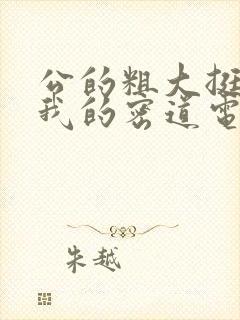 公的粗大挺
我的密道电
朱越